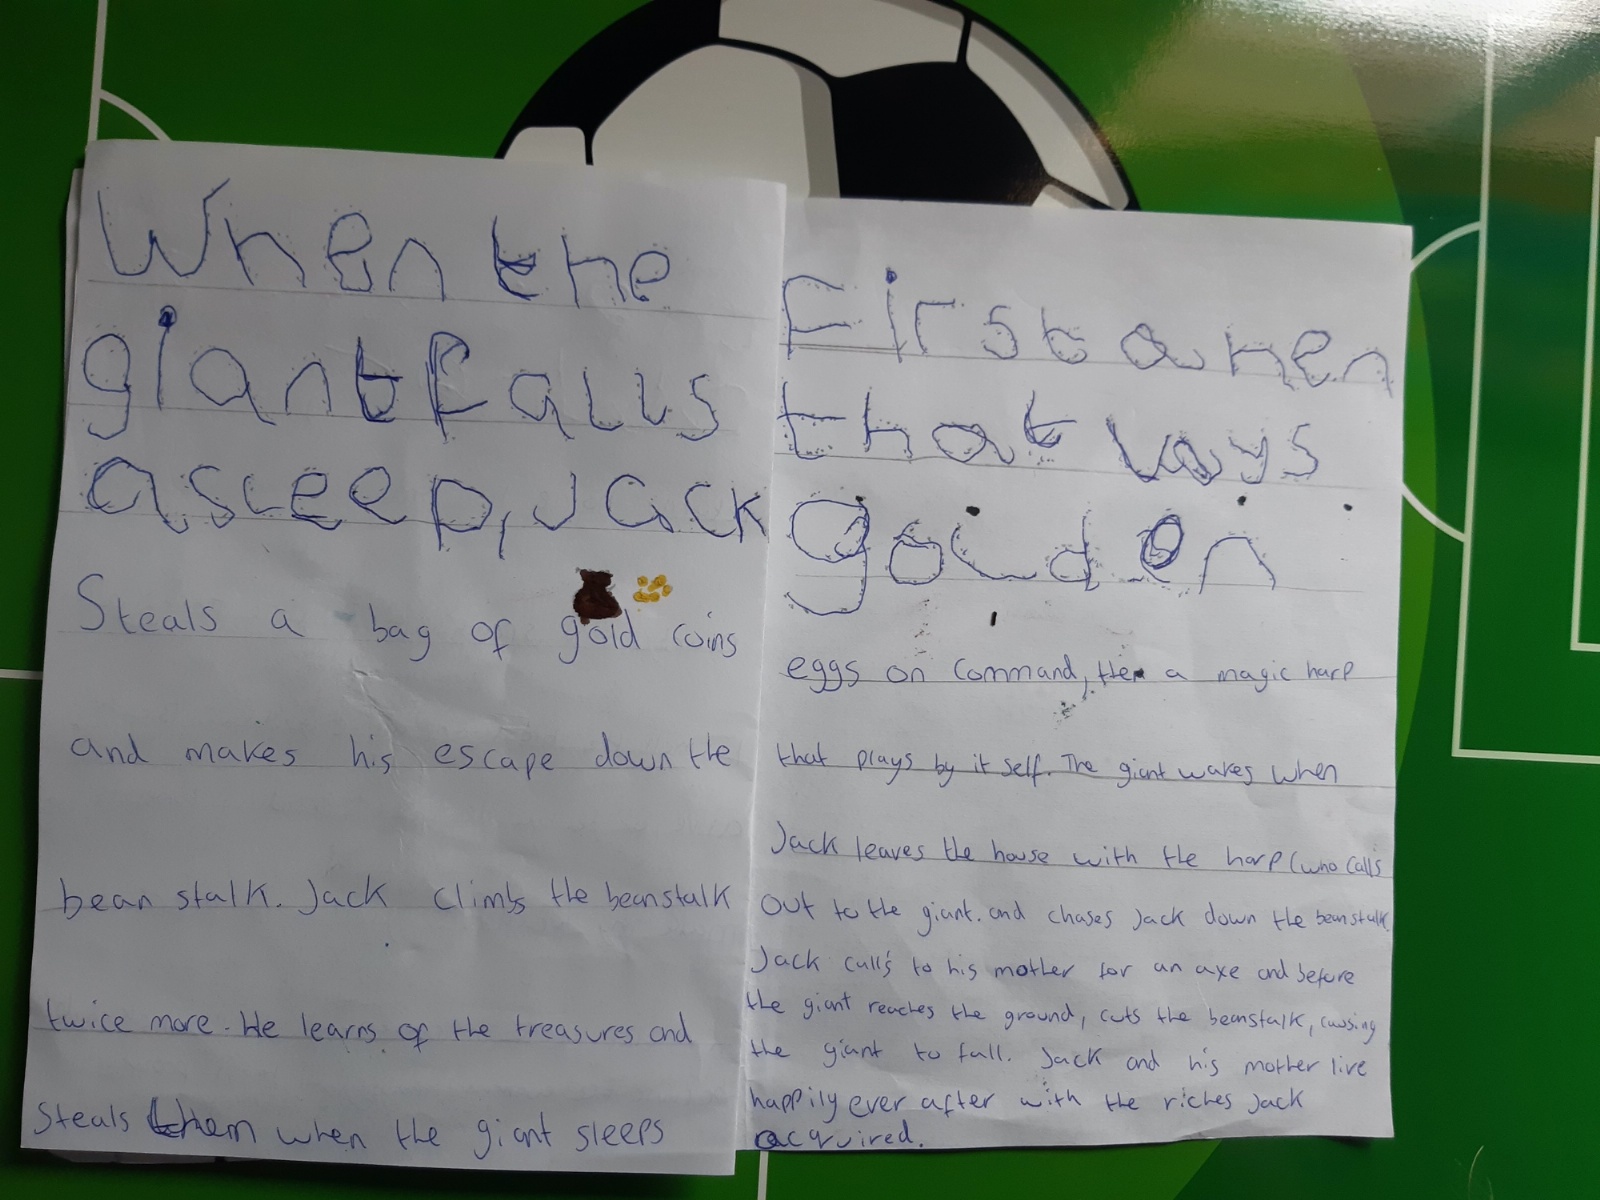 When the
giant falls
asleep, Jack
Steals a bag of gold coins
and makes his escape down the
bean stalk. Jack climbs the beanstalk
twice more. He learns of the treasures and
Steals them when the giant sleeps
First a hen
that lays
golden
eggs on command, then a magic harp
that plays by it self. The giant wakes when
Jack leaves the house with the harp (who calls
out to the giant. and chases Jack down the beanstalk.
Jack calls to his mother for an axe and before
the giant reaches the ground, cuts the beanstalk, causing
the giant to fall. Jack and his mother live
happily ever after with the riches Jack
acquired.